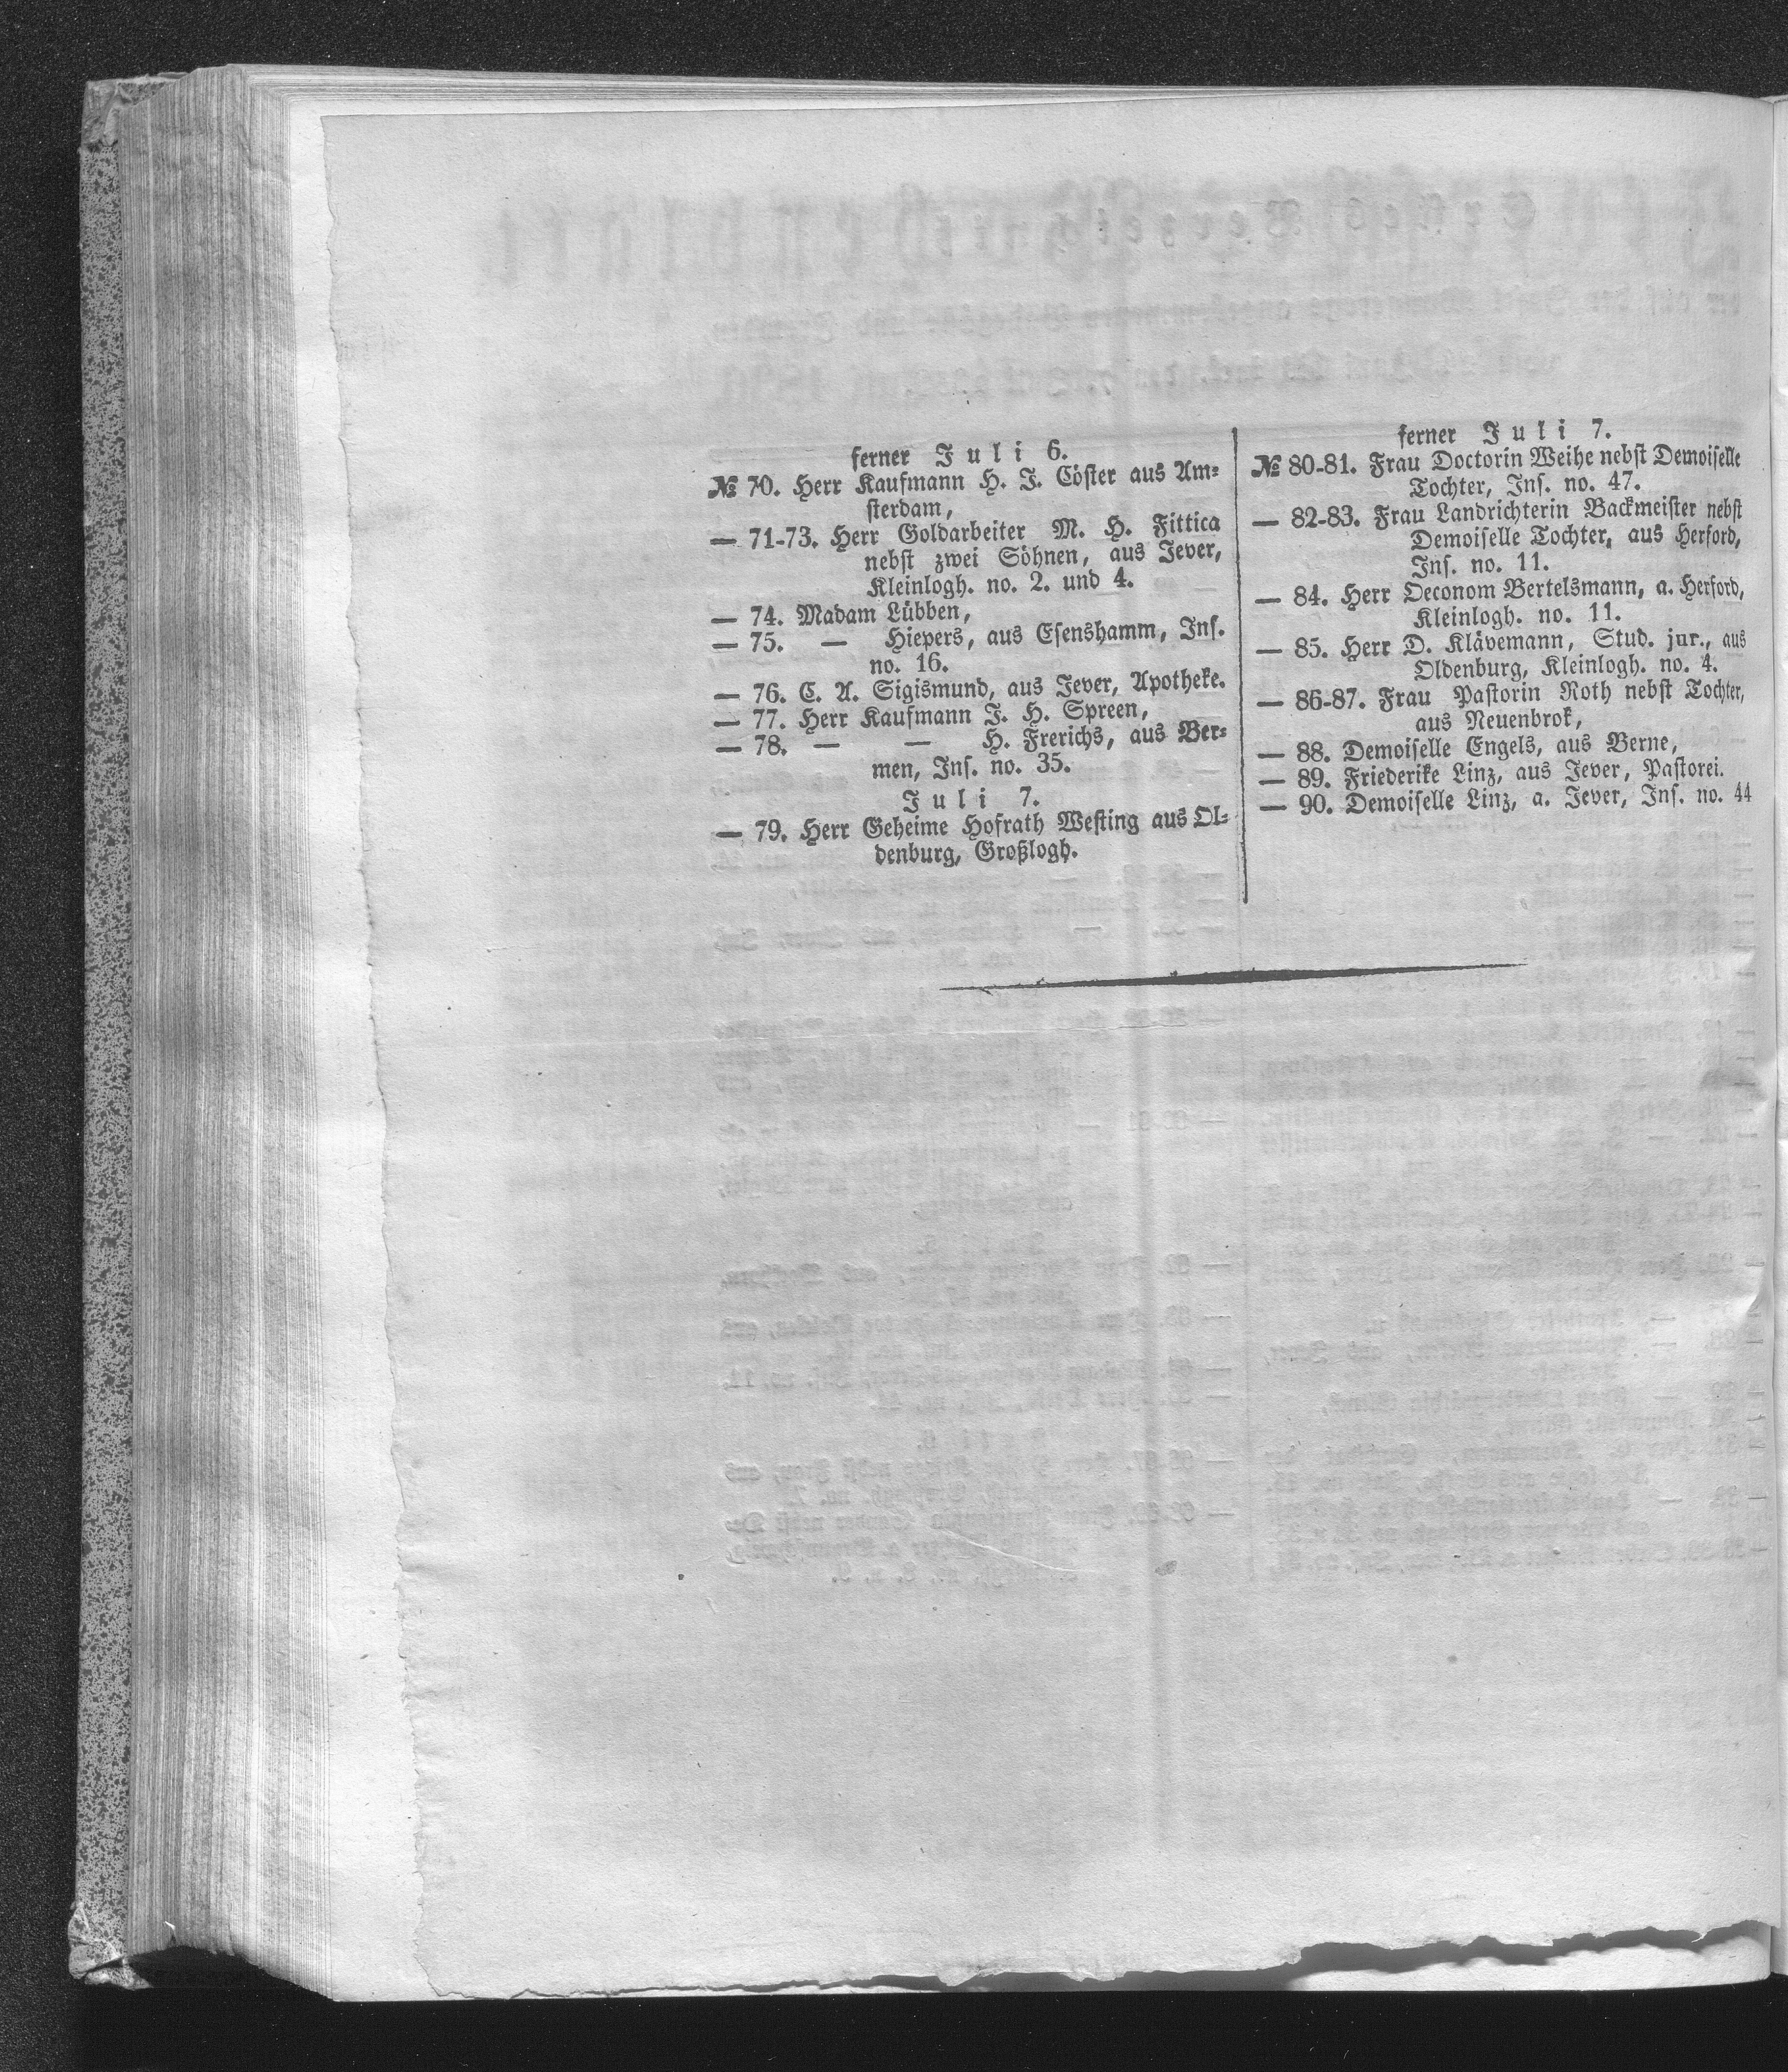 ferner Juli 6.
№ 70. Herr Kaufmann H. J. Cöster aus Am-
sterdam,
— 71-73. Herr Goldarbeiter M. H. Fittica
nebst zwei Söhnen, aus Jever,
Kleinlogh. no. 2. und 4.
— 74. Madam Lübben,
— 75. — Hiepers, aus Esenshamm, Ins.
no. 16.
— 76. C. A. Sigismund, aus Jever, Apotheke.
— 77. Herr Kaufmann J. H. Spreen,
— 78. — — H. Frerichs, aus Ber-
men, Ins. no. 35.
Juli 7.
— 79. Herr Geheime Hofrath Westing aus Ol-
denburg, Großlogh.
ferner Juli 7.
№ 80-81. Frau Doctorin Weihe nebst Demoiselle
Tochter, Ins. no. 47.
— 82-83. Frau Landrichterin Backmeister nebst
Demoiselle Tochter, aus Herford,
Ins. no. 11.
— 84. Herr Oeconom Bertelsmann, a. Herford,
Kleinlogh. no. 11.
— 85. Herr D. Klävemann, Stud. jur., aus
Oldenburg, Kleinlogh. no. 4.
— 86-87. Frau Pastorin Roth nebst Tochter,
aus Neuenbrok,
— 88. Demoiselle Engels, aus Berne,
— 89. Friederike Linz, aus Jever, Pastorei.
— 90. Demoiselle Linz, a. Jever, Ins. no. 44